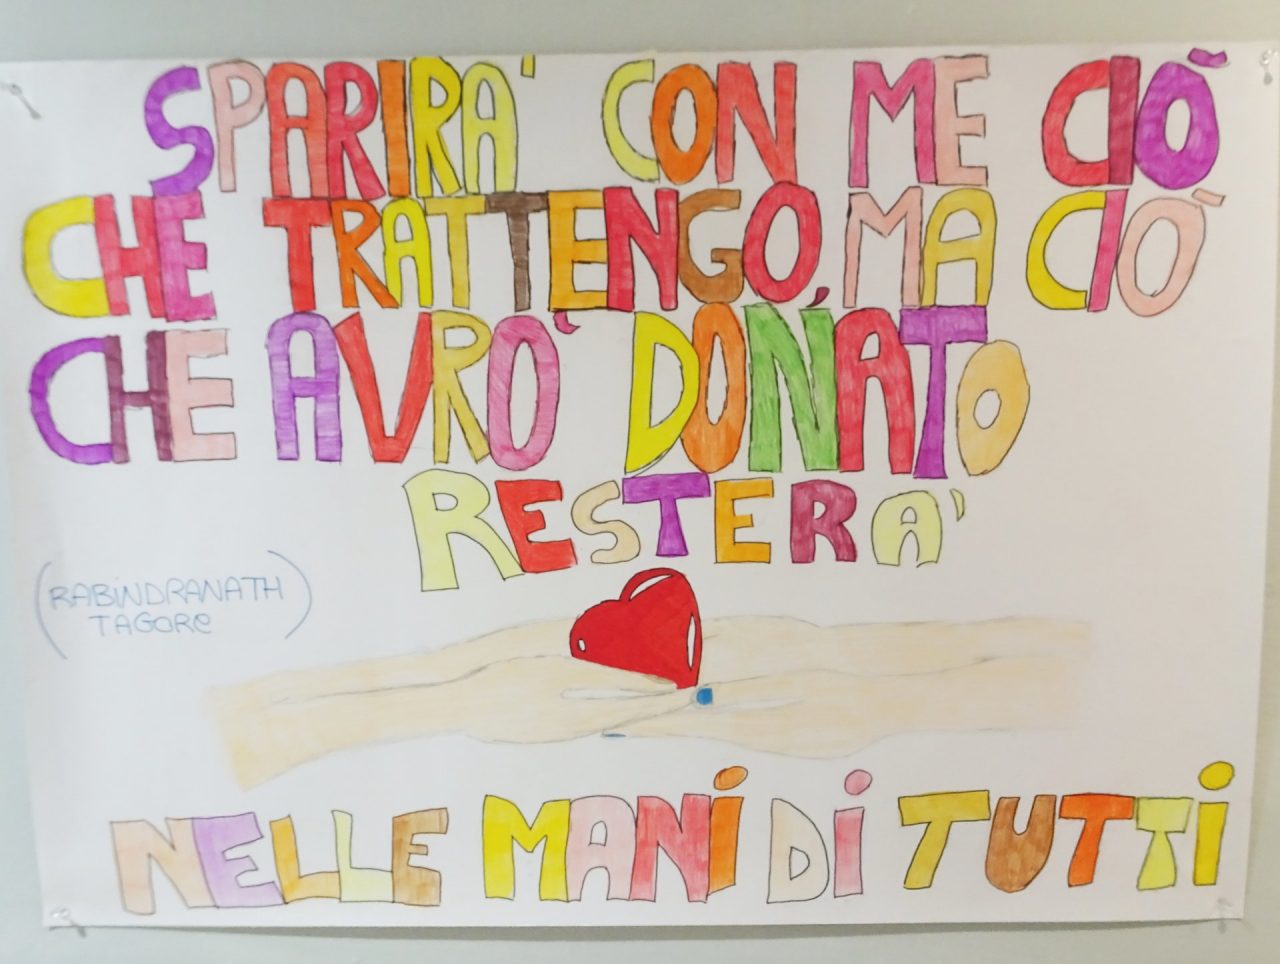 SPARIRA' CON ME CIÒ
CHE TRATTENGO, MA CIO'
CHE AVRO' DONATO
RESTERA'
(RABINDRANATH
TAGORE)
NELLE MANI DI TUTTI